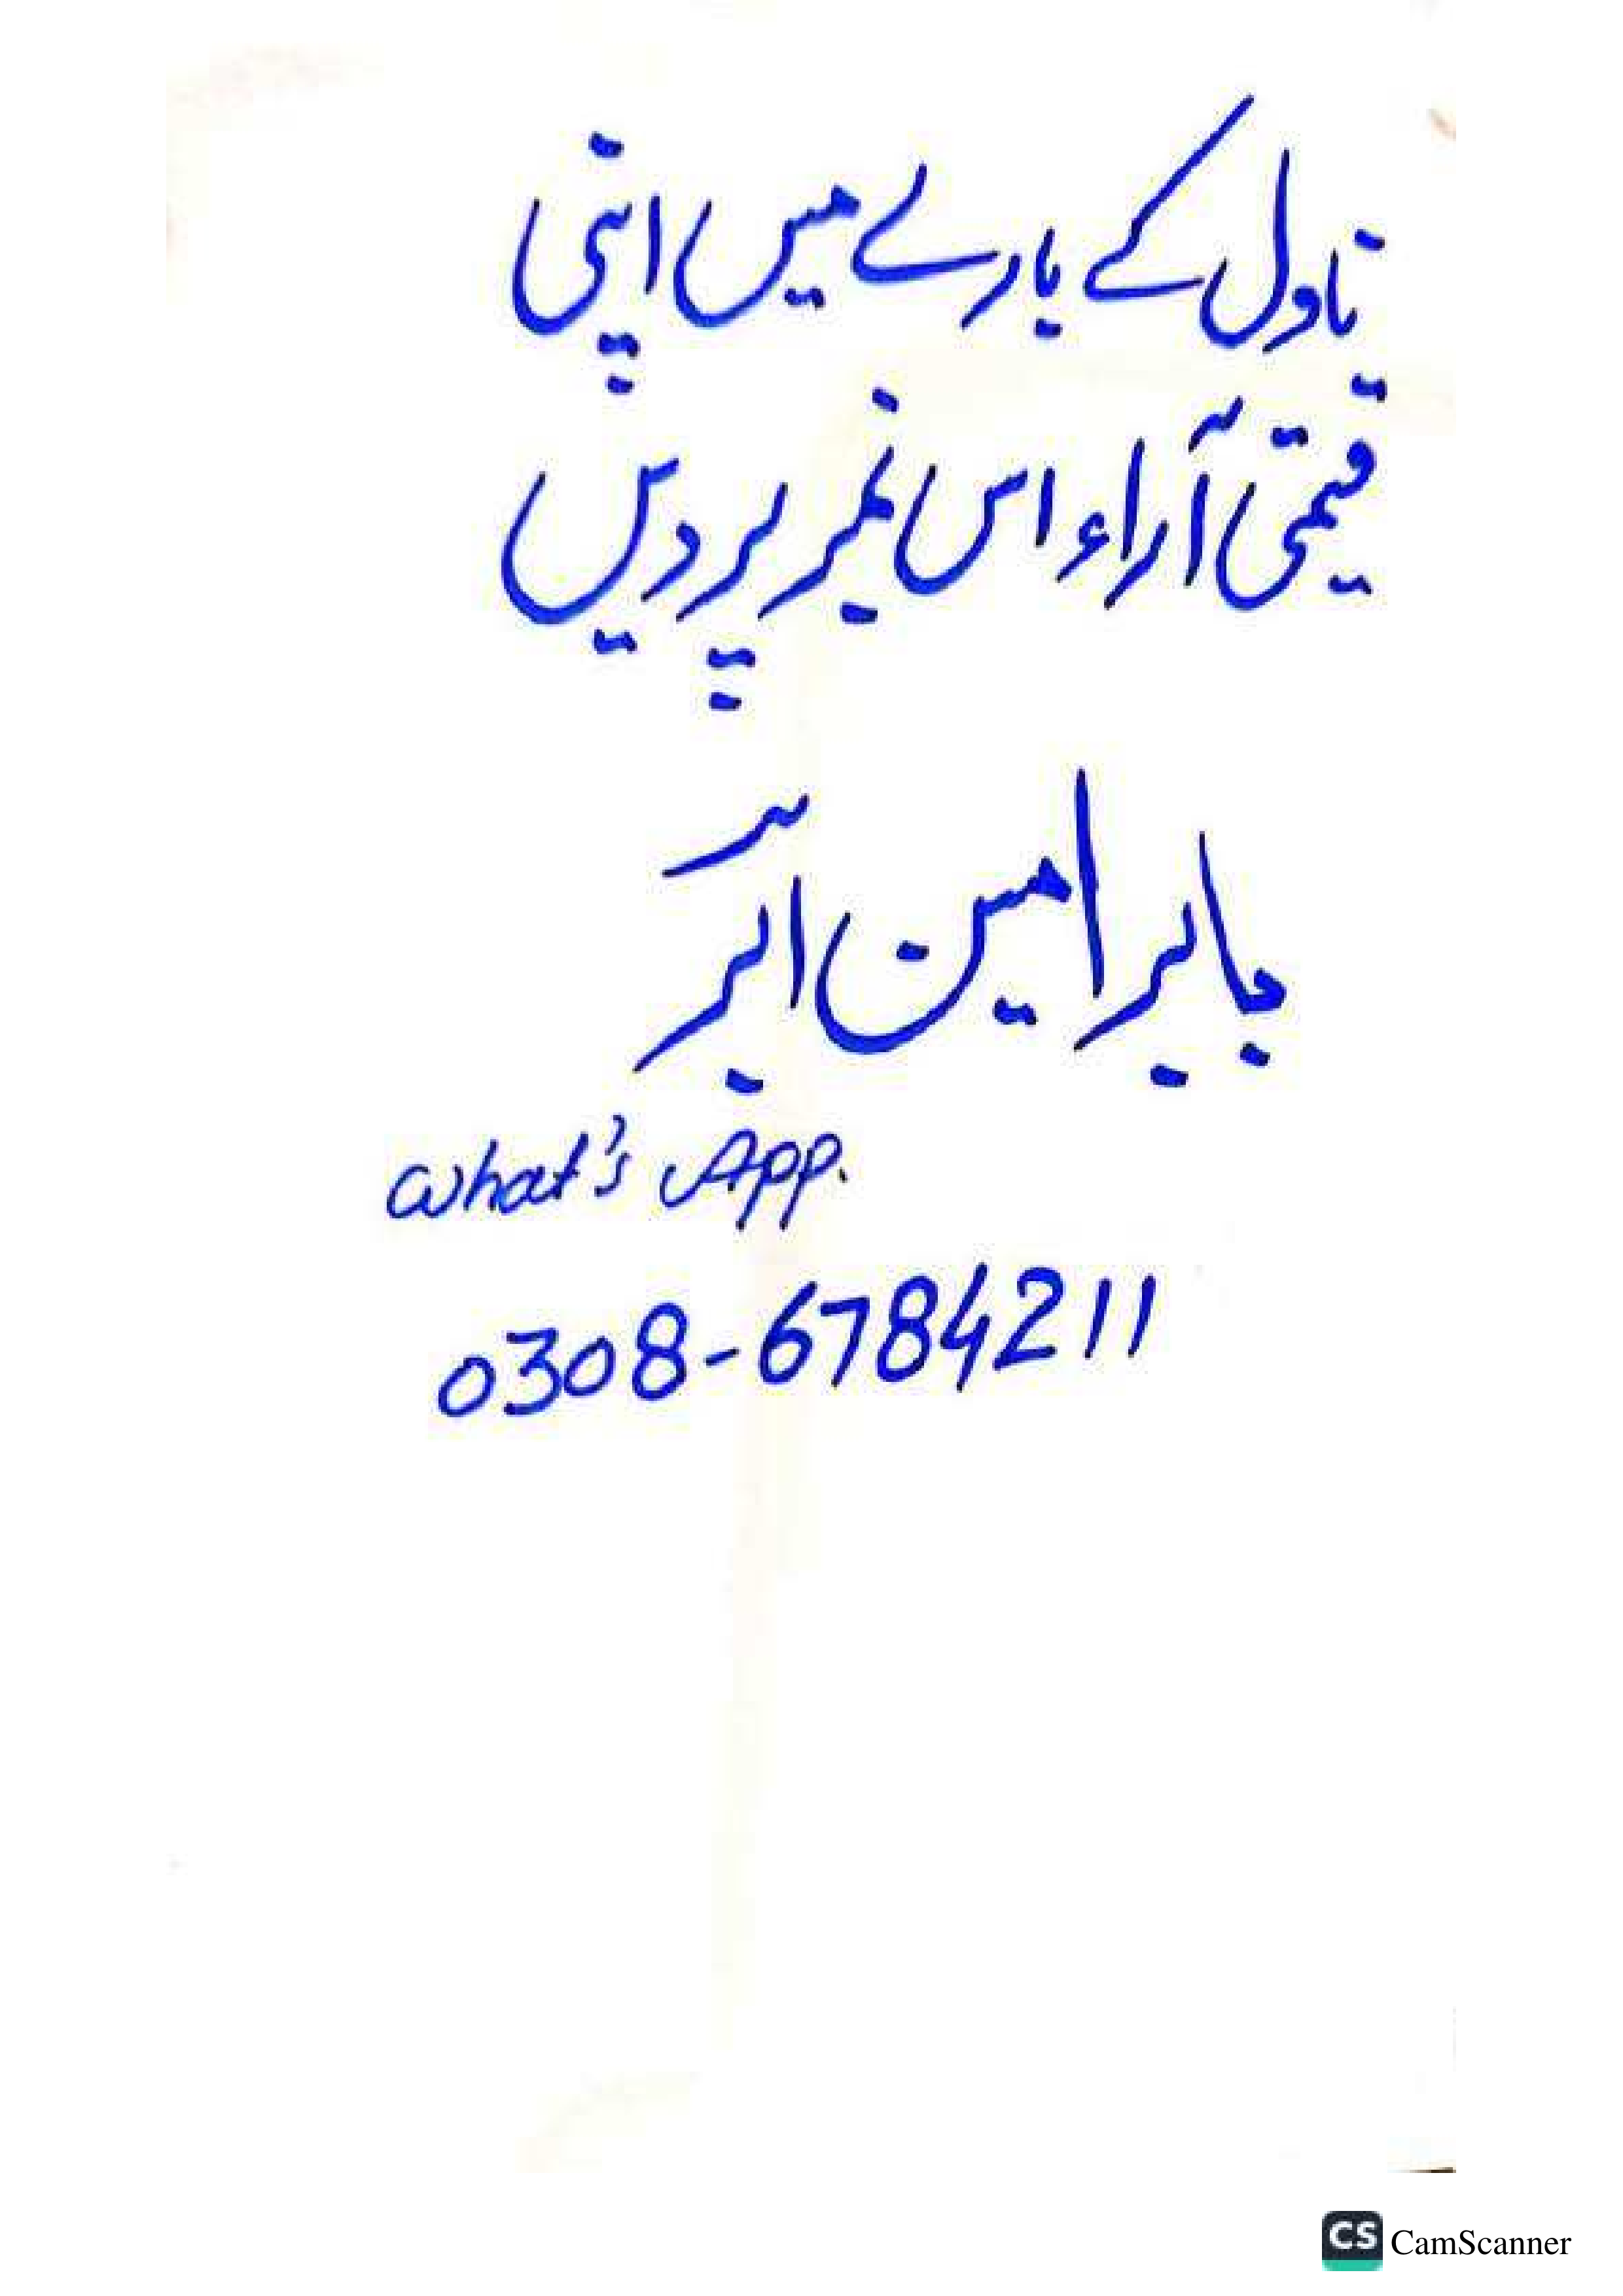 ناول کے بارے میں اپنی
قیمتی آراء اس نمبر پر دیں
جابر امین ابرؔ
What's App.
0308-6784211
CS CamScanner